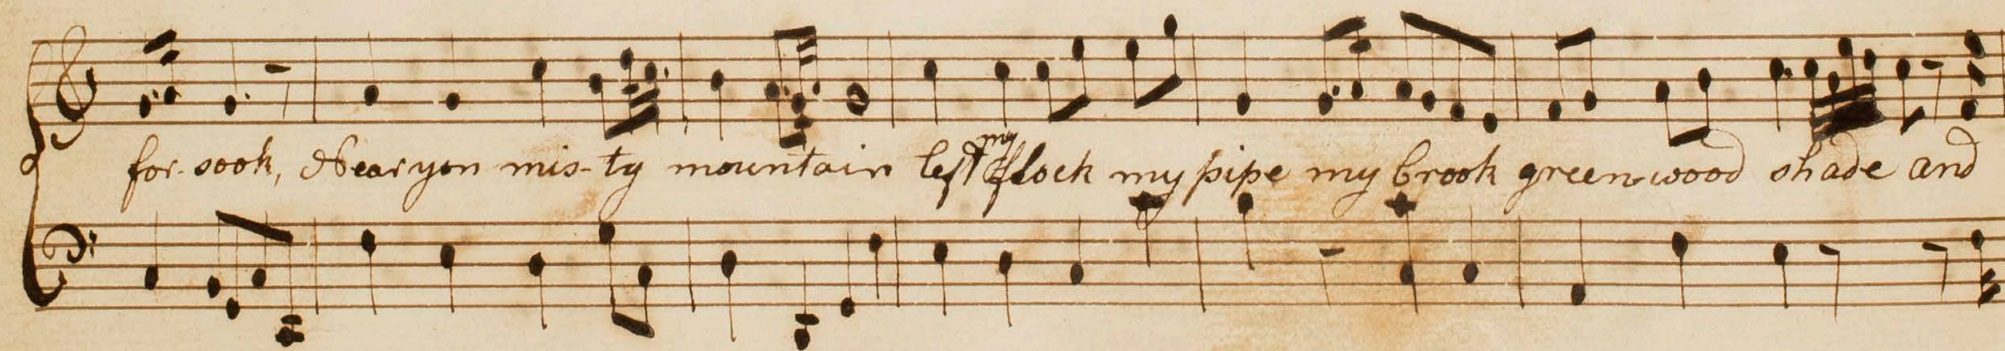 my
for- sook, Near yon mis- ty mountain left flock my pipe my brook greenwood shade and